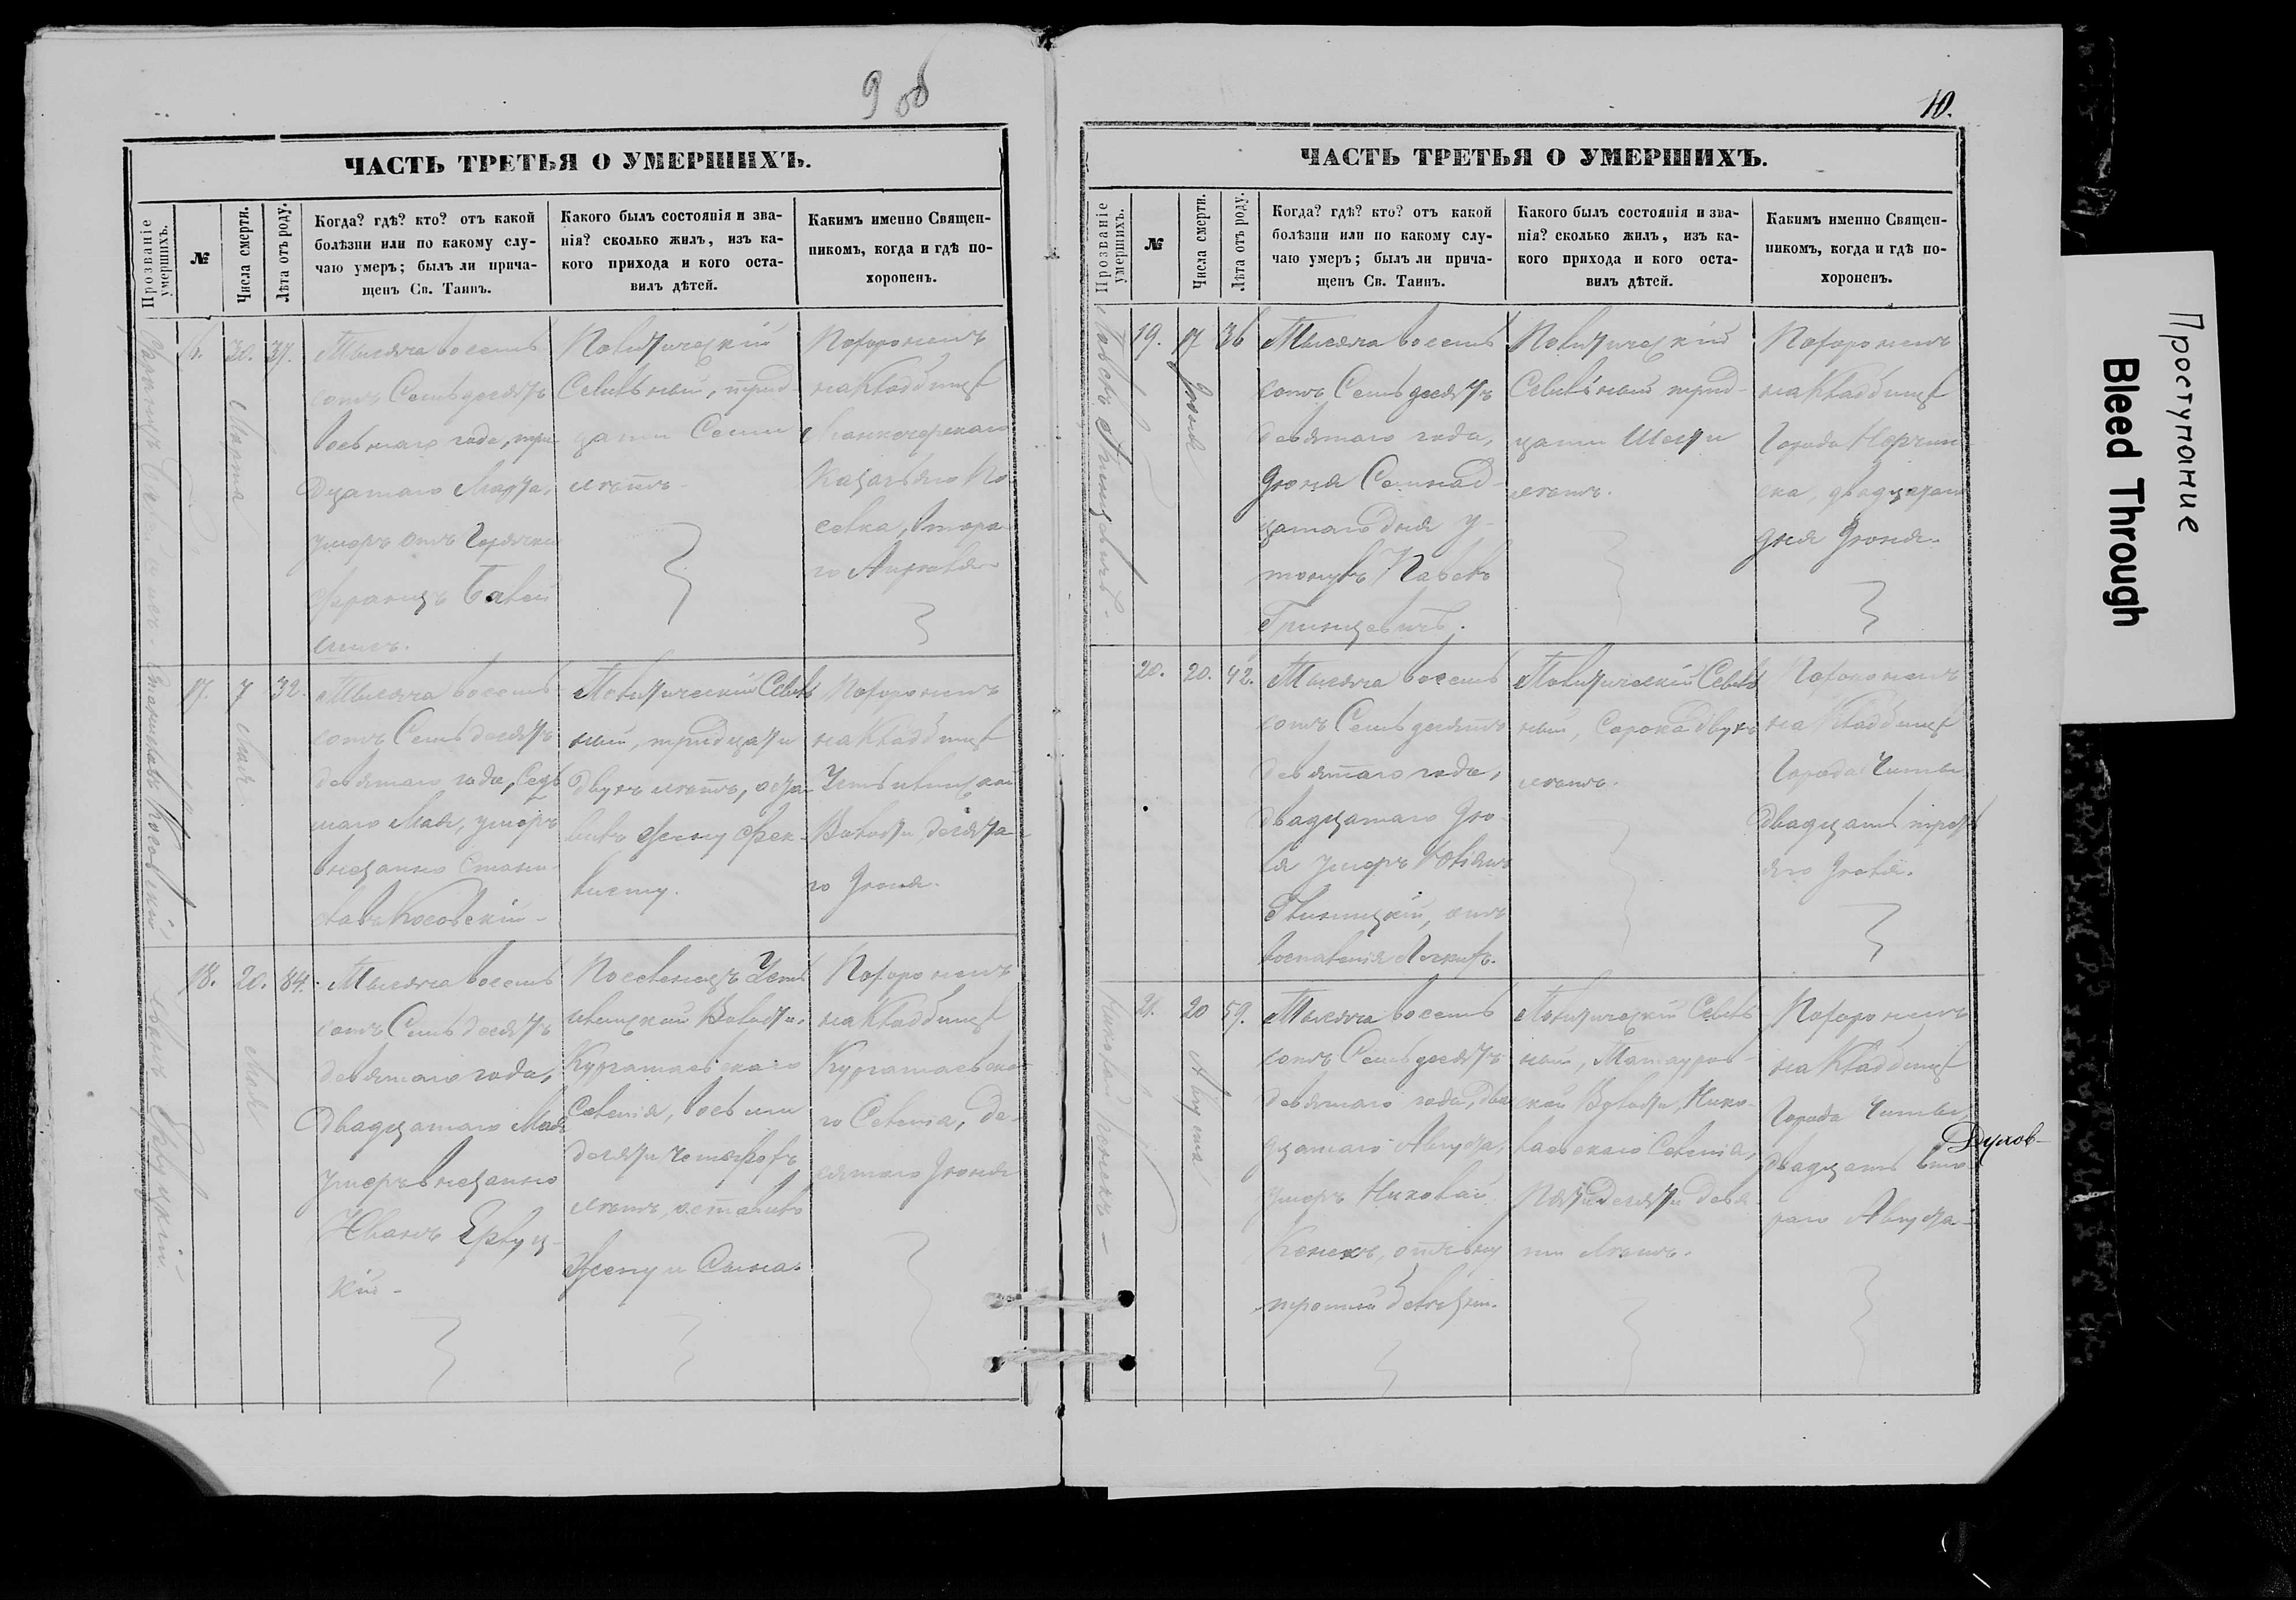 9 об
ЧАСТЬ ТРЕТЬЯ О УМЕРШИХЪ.
Прозваніе умершихъ.
№
Числа смерти.
Лѣта отъ роду.
Когда? гдѣ? кто? отъ какой
болѣзни или по какому слу-
чаю умеръ; былъ ли прича-
щенъ Св. Таинъ.
Какого былъ состоянія и зва-
нія? сколько жилъ, изъ ка-
кого прихода и кого оста-
вилъ дѣтей.
Какимъ именно Священ-
никомъ, когда и гдѣ по-
хороненъ.
30. Марта
37.
Тысяча восемь
сотъ Семьдесятъ
восьмаго года, три-
дцатаго Марта,
умеръ отъ Горячки
Францъ
Политическій
Ссыльный, трид-
цати Семи
лѣтъ.
Похороненъ
на Кладбищѣ
Казачьяго По
селка, втора
го Апрѣля
Станиславъ Косовскій
17.
7 Мая
32.
Тысяча восемь
сотъ Семьдесятъ
девятаго года, Седь
маго Мая, умеръ
внезапно Стани-
славъ Косовскій -
Политическій Ссыль
ный, тридцати
двухъ лѣтъ, оста-
вилъ Жену Фек-
Похороненъ
на Кладбищѣ
Волости, десята
го Іюня.
Иванъ Ервуцкій
18.
20. Мая
84.
Тысяча восемь
сотъ Семьдесятъ
девятаго года,
Двадцатаго Мая
умеръ внезапно
Иванъ Ервуц-
кій -
Поселенецъ Усть
Волости,
Селенія, восьми
десяти четырехъ
лѣтъ, оставилъ
Жену и Сына.
Похороненъ
на Кладбищѣ
го Селенія, де-
сятаго Іюня
10.
ЧАСТЬ ТРЕТЬЯ О УМЕРШИХЪ.
Прозваніе умершихъ.
№
Числа смерти.
Лѣта отъ роду.
Когда? гдѣ? кто? отъ какой
болѣзни или по какому слу-
чаю умеръ; былъ ли прича-
щенъ Св. Таинъ.
Какого былъ состоянія и зва-
нія? сколько жилъ, изъ ка-
кого прихода и кого оста-
вилъ дѣтей.
Какимъ именно Священ-
никомъ, когда и гдѣ по-
хороненъ.
Павелъ Гринцевичъ
19.
17 Іюня
36
Тысяча восемь
сотъ Семьдесятъ
девятаго года,
Іюня Семнад-
цатаго дня у-
тонулъ Павелъ
Гринцевичъ.
Политическій
Ссыльный трид-
цати Шести
лѣтъ.
Похороненъ
на Кладбищѣ
Города Нерчин
ска, двадцатаго
дня Іюня.
20.
20.
42.
Тысяча восемь
сотъ Семьдесятъ
девятаго года,
двадцатаго Iю-
ля умеръ
отъ
воспаленія Легкихъ.
Политическій Ссыль
ный, Сорока двухъ
лѣтъ.
Похороненъ
на Кладбищѣ
Города Читы
двадцать треть
яго Іюля.
Николай Конекъ
21.
20 Августа
59.
Тысяча восемь
сотъ Семьдесятъ
девятаго года, два
дцатаго Августа,
умеръ Николай
Конекъ, отъ вну
тренней болѣзни.
Политическій Ссыль
ный, Татауров-
ской Волости, Нико-
лаевскаго Селенія,
Пятидесяти девя
ти Лѣтъ.
Похороненъ
на Кладбищѣ
Города Читы
двадцать вто
раго Августа
Проступание
Bleed Through